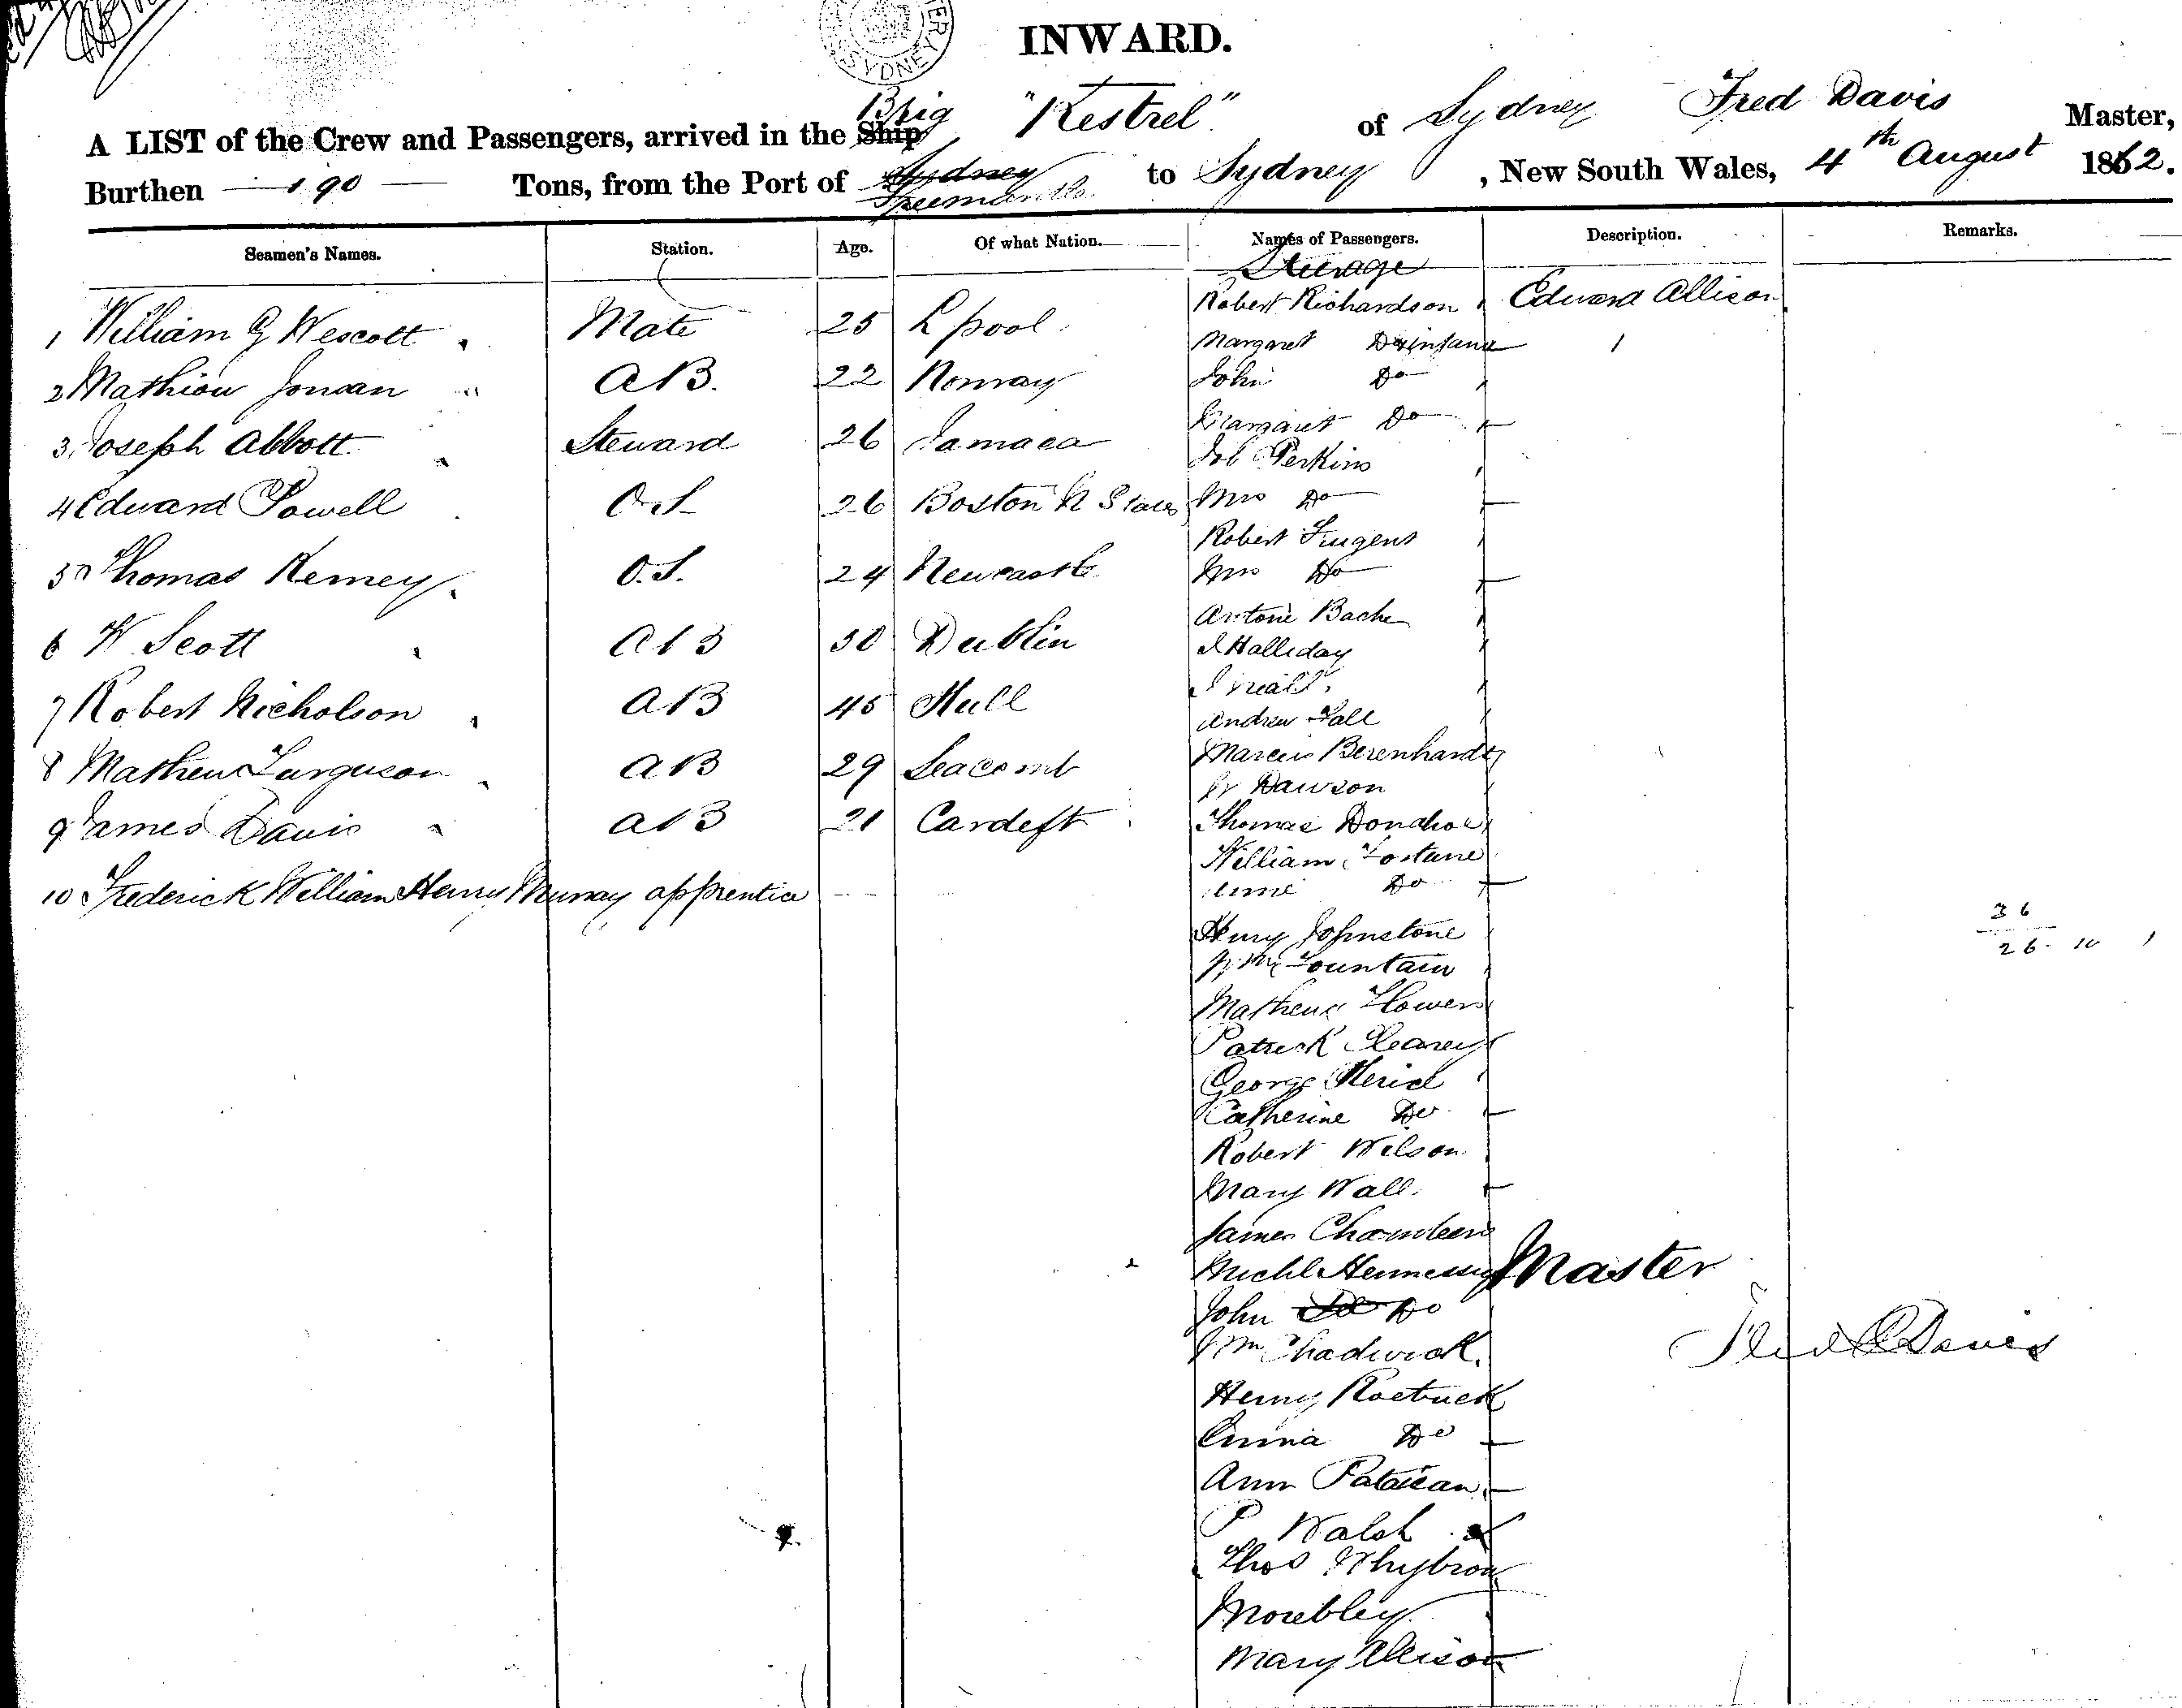 SYDNEY
INWARD.
A LIST of the Crew and Passengers, arrived in the Ship Brig "Kestrel" of Sydney Fred Davis Master,
Burthen 190 Tons, from the Port of Sydney to Sydney, New South Wales, 4th August 1862.
Seamen's Names. Station. Age. Of what Nation. Names of Passengers. Description. Remarks.
Steerage
1 William G Wescott Mate 25 Lpool
2 Mathiou Jonsan AB. 22 Norway
3 Joseph Abbott Steward 26 Jamaca
4 Edward Powell O.S 26 Boston N States
5 Thomas Kemey O.S. 24 Newcastle
6 W Scott AB 30 Dublin
7 Robert Nicholson AB 45 Hull
8 Mathew Furguson AB 29 Seacomb
9 James Davis AB 21 Cardeft
10 Frederick William Henry Murray apprentice
Robert Richardson Edward Allison
Margaret Do infant 1
John Do
Margaret Do
Job Perkins
Mrs Do
Robert
Mrs Do
Antone Bache
J Halliday
Andrew
Marcus Berenhardt
Dawson
Thomas Donahoe
William Fortune
Do
Henry Johnstone
Fountain
Mathew Flower
Patrick Cleary
George
Catherine Do
Robert Wilson
Mary Wall
James Chambers
Michl Hennessy
John Do Do
Wm Chadwick
Henry Roebuck
Do
Ann
P Walsh
Thos Whybrow
Mary Allison
36
26 - 10 1
Master
Fred Davis